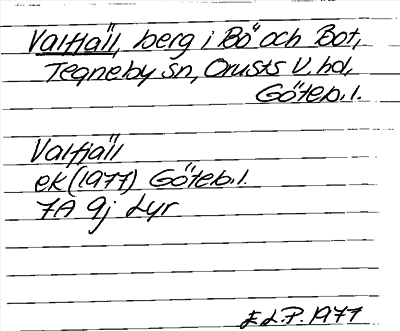 Valfjäll, berg i Bö och Bot,
Tegneby sn, Orusts V. hd,
Göteb. l.
Valfjäll
ek (1977) Göteb. l.
7A 9j Lyr
E.L.P. 1977